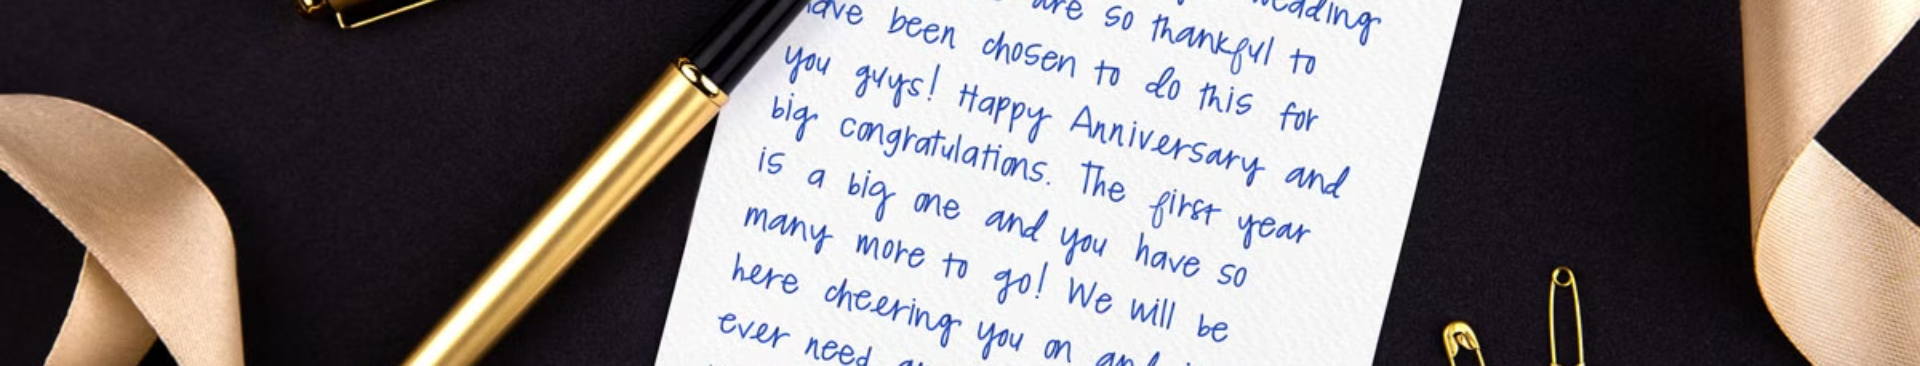 are so thankful to
have been chosen to do this for
you guys! Happy Anniversary and
big congratulations. The first year
is a big one and you have so
many more to go! We will be
here cheering you on and
ever need